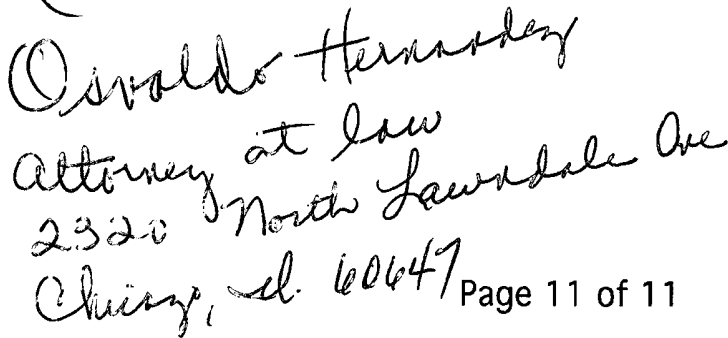 Osvaldo Hernandez
Attorney at law
2320 North Lawndale Ave
Chicago, Il. 60647
Page 11 of 11